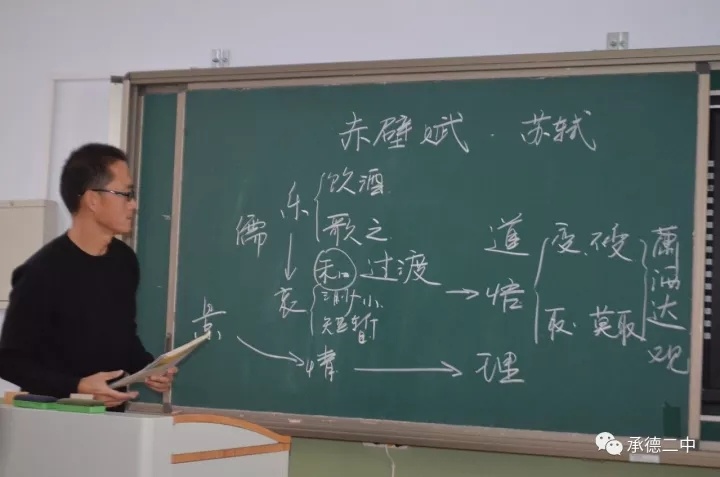 赤壁赋·苏轼
儒 乐 饮酒
歌之
和 过渡
哀 渺小
短暂
道 变、不变
悟 取、莫取
潇洒达观
景 情 理
承德二中